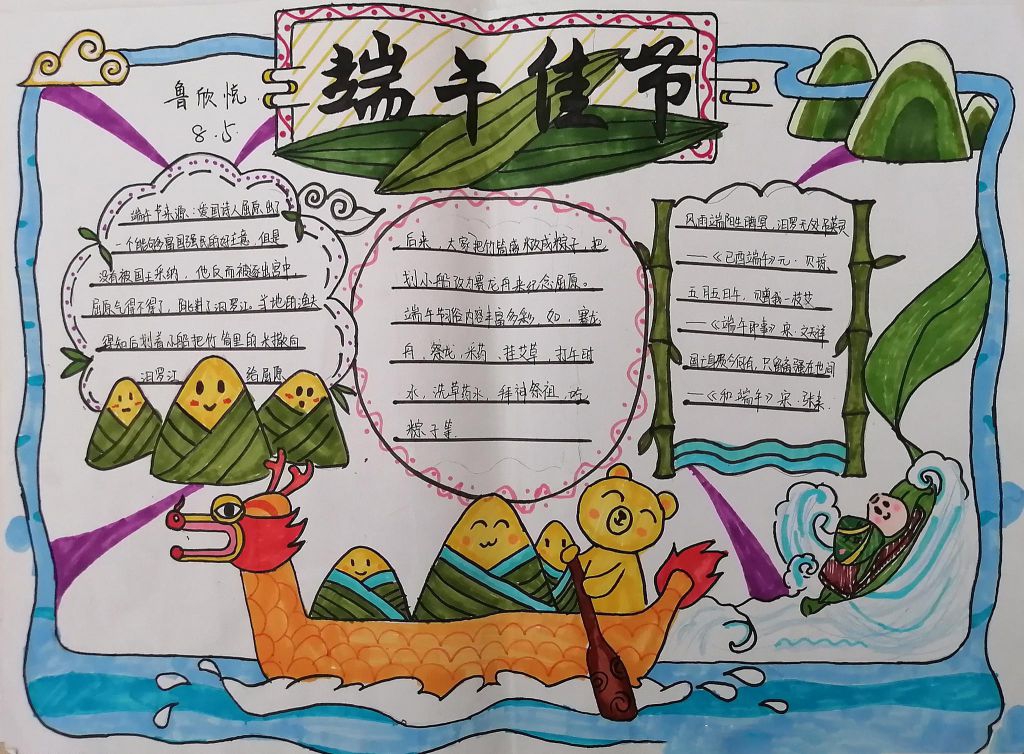 端午佳节
鲁欣悦
8.5.
端午节来源：爱国诗人屈原出了
一个能够富国强民的好主意，但是
没有被国王采纳，他反而被逐出宫中，
屈原气得不得了，跳进了汨罗江。当地的渔夫
得知后划着小船把竹筒里的米撒向
汨罗江，给屈原
后来，大家把竹筒米改成粽子，把
划小船改为赛龙舟来纪念屈原。
端午节俗内容丰富多彩，如：赛龙
舟、祭龙、采药、挂艾草、打午时
水、洗草药水、拜神祭祖、吃
粽子等。
风雨端阳生晦冥，汨罗无处吊英灵
——《己酉端午》元·贝琼
五月五日午，赠我一枝艾
——《端午即事》宋·文天祥
国亡身殒今何有，只留离骚在世间
——《和端午》宋·张耒